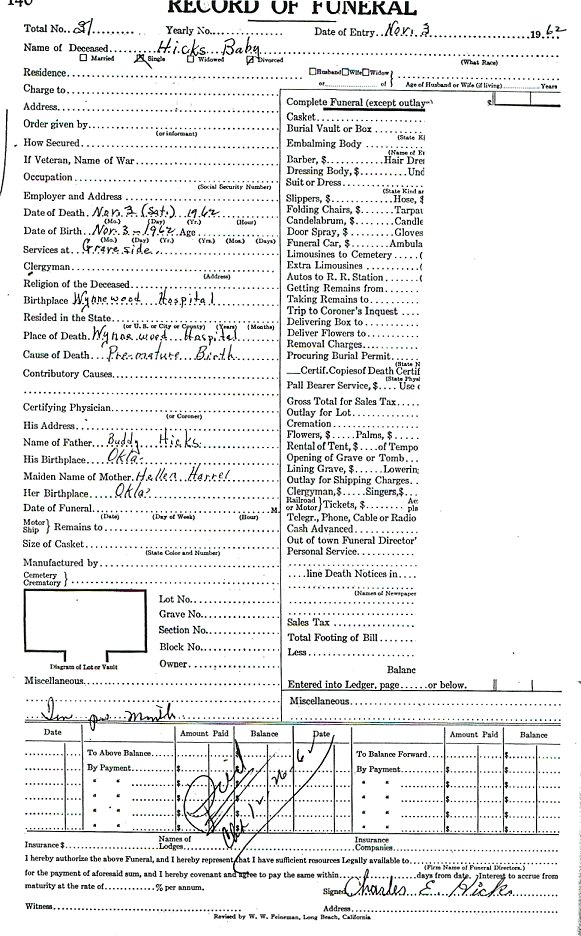 140
RECORD OF FUNERAL
Total No. 81 Yearly No. Date of Entry Nov. 3 1962
Name of Deceased Hicks Baby
Married Single Widowed Divorced (What Race)
Residence Husband Wife Widow
or of Age of Husband or Wife (if living) Years
Charge to
Address
Order given by
(or informant)
How Secured
If Veteran, Name of War
Occupation
(Social Security Number)
Employer and Address
Date of Death Nov. 3 (Sat.) 1962
(Mo.) (Day) (Yr.) (Hour)
Date of Birth Nov. 3 - 1962 Age
(Mo.) (Day) (Yr.) (Yrs.) (Mos.) (Days)
Services at Graveside
Clergyman
(Address)
Religion of the Deceased
Birthplace Wynnewood Hospital
Resided in the State
(or U. S. or City or County) (Years) (Months)
Place of Death Wynnewood Hospital
Cause of Death Pre-mature Birth
Contributory Causes
Certifying Physician
(or Coroner)
His Address
Name of Father Buddy Hicks
His Birthplace Okla.
Maiden Name of Mother Hellen Harrel
Her Birthplace Okla.
Date of Funeral M.
(Date) (Day of Week) (Hour)
Motor
Ship } Remains to
Size of Casket
(State Color and Number)
Manufactured by
Cemetery
Crematory }
Lot No.
Grave No.
Section No.
Block No.
Owner
Diagram of Lot or Vault
Miscellaneous
Complete Funeral (except outlay $
Casket
Burial Vault or Box
(State Ki
Embalming Body
(Name of E
Barber, $ Hair Dre
Dressing Body, $ Und
Suit or Dress
(State Kind a
Slippers, $ Hose, $
Folding Chairs, $ Tarpau
Candelabrum, $ Candle
Door Spray, $ Gloves
Funeral Car, $ Ambula
Limousines to Cemetery (
Extra Limousines (
Autos to R. R. Station (
Getting Remains from
Taking Remains to
Trip to Coroner's Inquest
Delivering Box to
Deliver Flowers to
Removal Charges
Procuring Burial Permit
(State N
Certif. Copies of Death Certif
(State Physi
Pall Bearer Service, $ Use
Gross Total for Sales Tax
Outlay for Lot
Cremation
Flowers, $ Palms, $
Rental of Tent, $ of Tempo
Opening of Grave or Tomb
Lining Grave, $ Lowerin
Outlay for Shipping Charges
Clergyman, $ Singers, $
Railroad
or Motor } Tickets, $ Ac
pla
Telegr., Phone, Cable or Radio
Cash Advanced
Out of town Funeral Director'
Personal Service
line Death Notices in
(Names of Newspaper
Sales Tax
Total Footing of Bill
Less
Balanc
Entered into Ledger, page or below.
Miscellaneous
per month
Date Amount Paid Balance Date Amount Paid Balance
To Above Balance $ To Balance Forward $
By Payment $ By Payment $
" " $ " " $
" " $ " " $
" " $ " " $
" " $ " " $
Paid
Insurance $ Names of
Lodges Insurance
Companies
I hereby authorize the above Funeral, and I hereby represent that I have sufficient resources Legally available to
(Firm Name of Funeral Directors.)
for the payment of aforesaid sum, and I hereby covenant and agree to pay the same within days from date. Interest to accrue from
maturity at the rate of % per annum. Signed Charles E. Hicks
Witness Address
Revised by W. W. Feineman, Long Beach, California